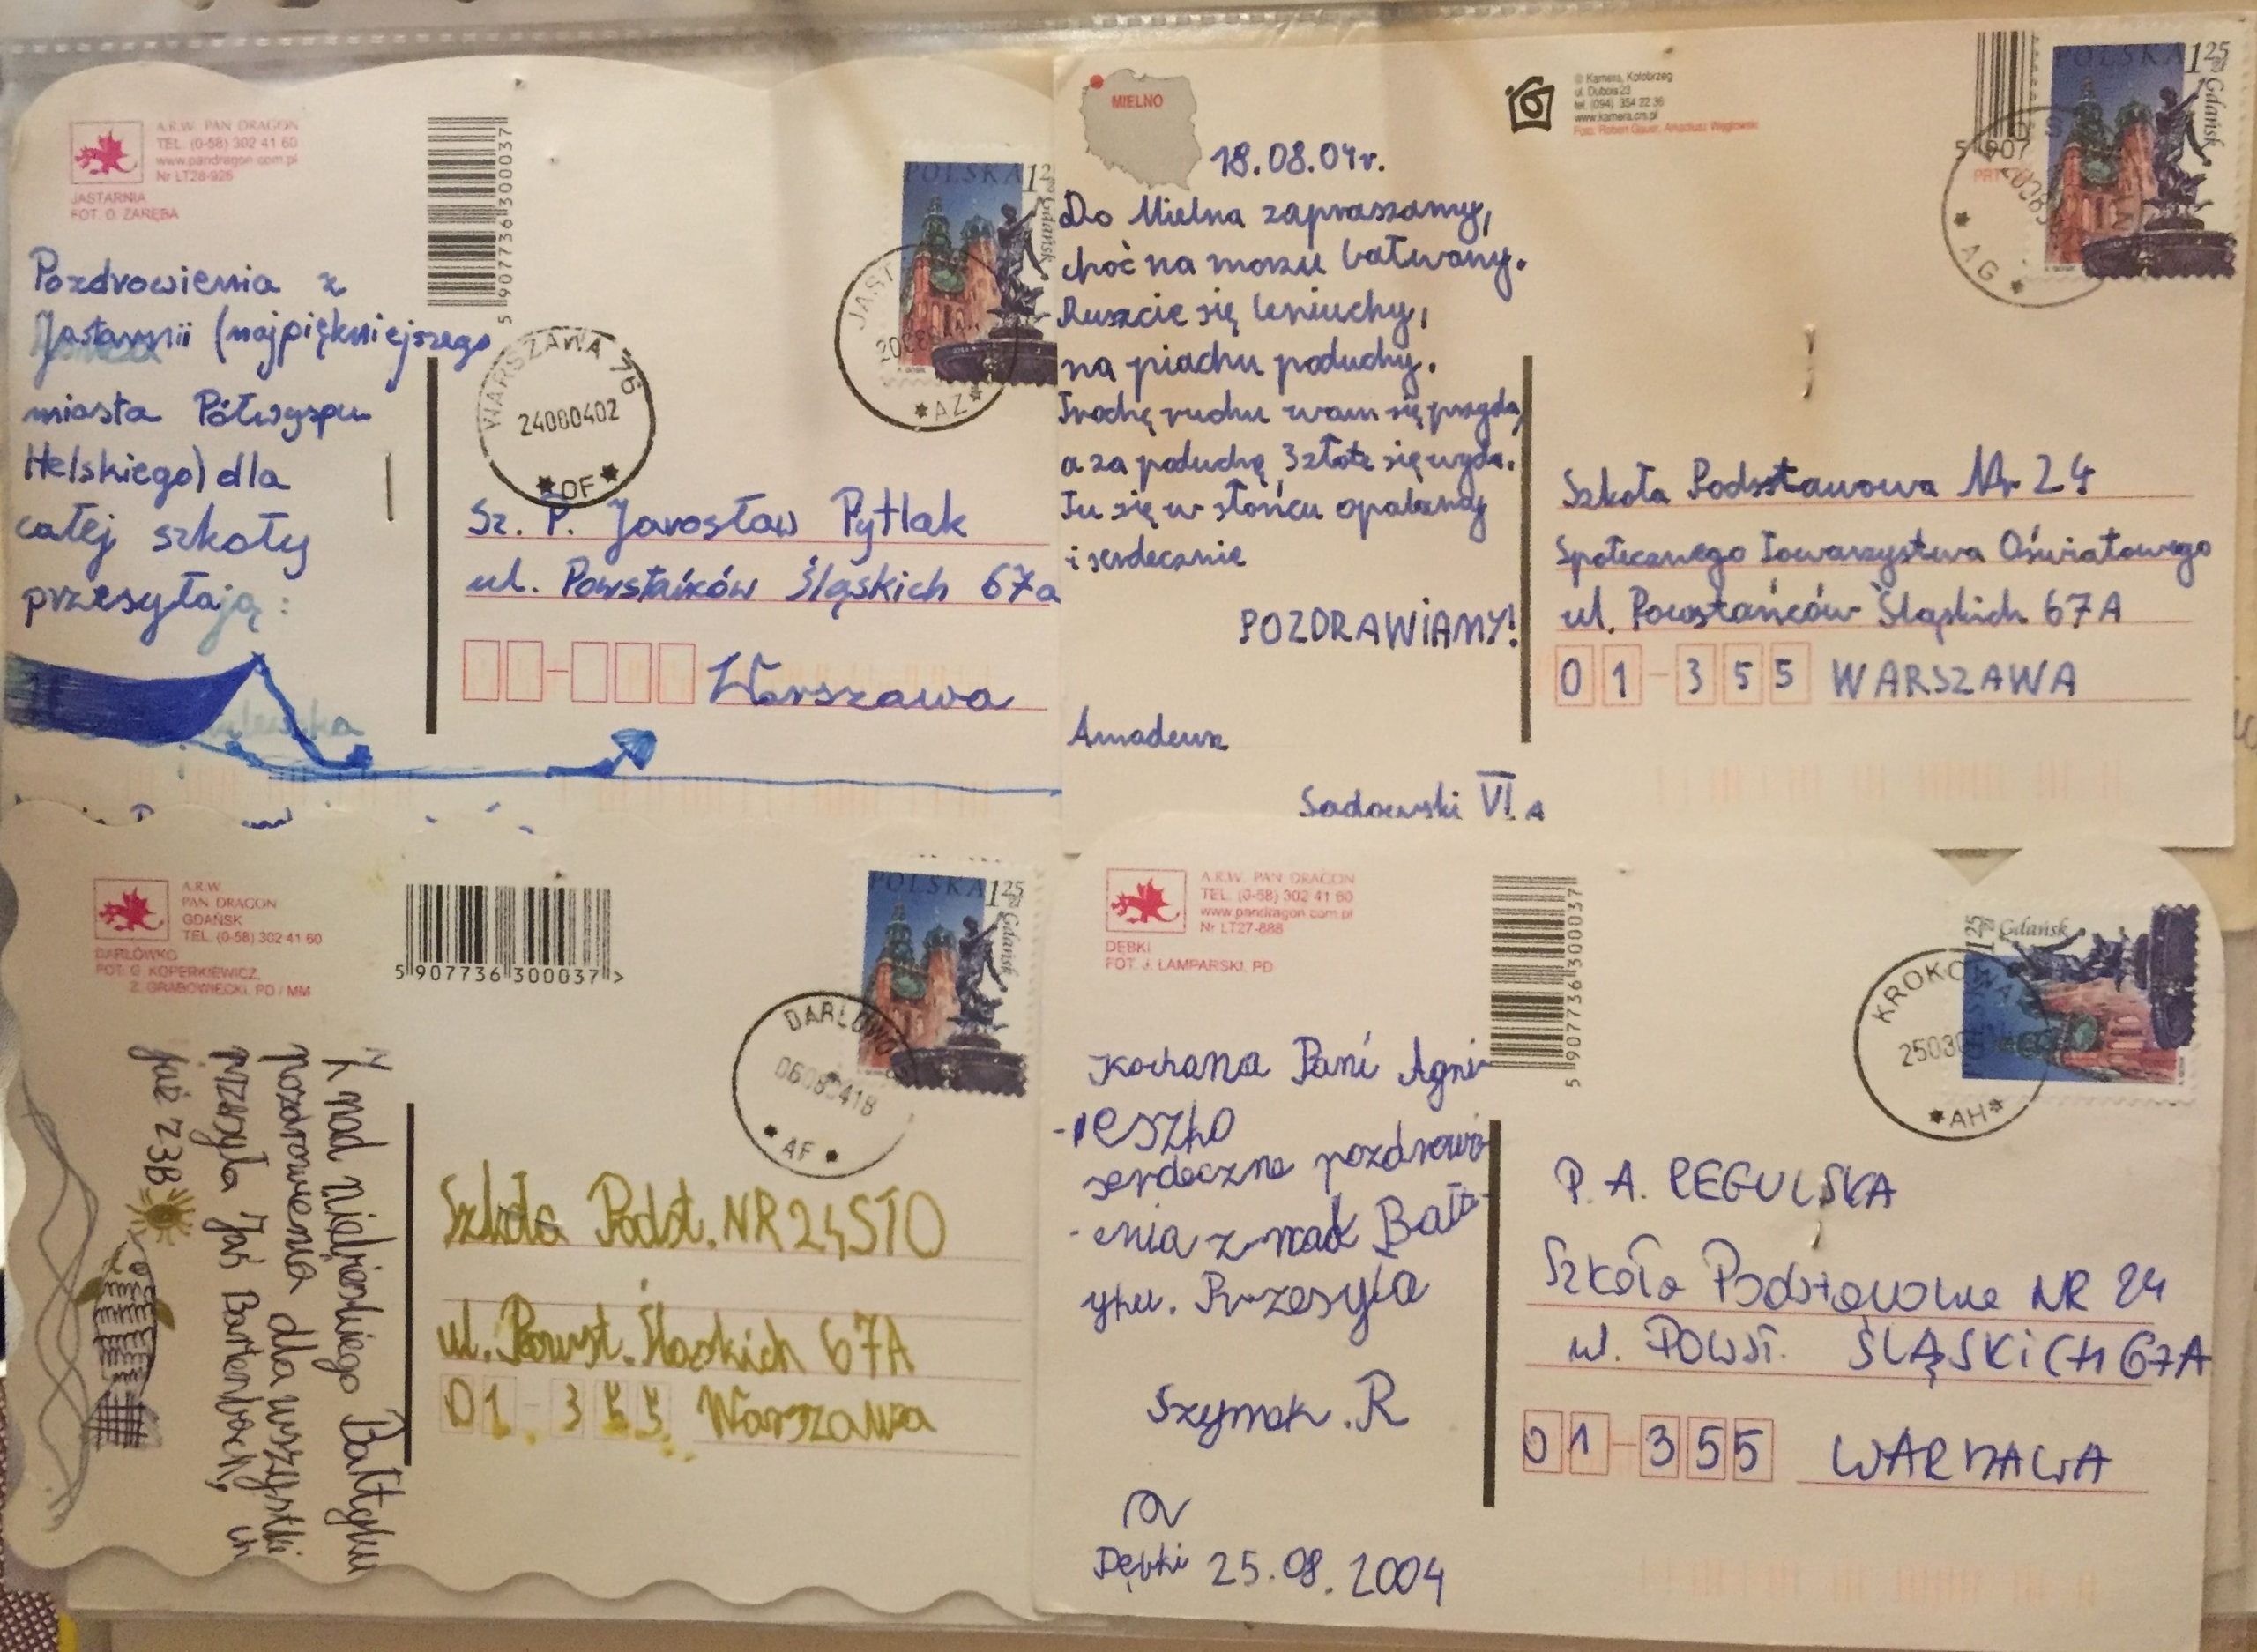 A.R.W. PAN DRAGON
TEL. (0-58) 302 41 60
www.pandragon.com.pl
Nr LT28-926
JASTARNIA
FOT. O. ZARĘBA
5 907736 300037
POLSKA
Gdańsk
JAST
* AZ *
WARSZAWA 76
24080402
* OF *
Pozdrowienia z
Jastarnii (najpiękniejszego
miasta Półwyspu
Helskiego) dla
całej szkoły
przesyłają:
Sz. P. Jarosław Pytlak
ul. Powstańców Śląskich 67a
Warszawa
MIELNO
© Kamera, Kołobrzeg
ul. Dubois 23
tel. (094) 354 22 36
www.kamera.cm.pl
POLSKA 1 25 zł
Gdańsk
5 907
* AG *
18.08.04r.
Do Mielna zapraszamy,
choć na morzu bałwany.
Ruszcie się leniuchy,
na piachu poduchy.
Trochę ruchu wam się przyda,
a za poduchę 3 złote się wyda.
Tu się w słońcu opalamy
i serdecznie
POZDRAWIAMY!
Amadeusz
Sadowski VI A
Szkoła Podstawowa Nr 24
Społecznego Towarzystwa Oświatowego
ul. Powstańców Śląskich 67A
01-355 WARSZAWA
A.R.W.
PAN DRAGON
GDAŃSK
TEL. (0-58) 302 41 60
DARŁÓWKO
FOT. G. KOPERKIEWICZ,
Z. GRABOWIECKI, PD / MM
5 907736 300037 >
POLSKA 1 25 zł
Gdańsk
DARŁOWO
* AF *
Z nad niebieskiego Bałtyku
pozdrowienia dla wszystkich
przesyła Jaś
już z 3B
Szkoła Podst. NR 24 STO
ul. Powst. Śląskich 67A
01-355 Warszawa
A.R.W. PAN DRAGON
TEL. (0-58) 302 41 60
www.pandragon.com.pl
Nr LT27-888
DĘBKI
FOT. J. LAMPARSKI, PD
5 907736 300037
1 25 zł Gdańsk
KROKOWA
* AH *
Kochana Pani Agni
-eszko
serdeczne pozdrowi
-enia z nad Bałt
yku. Przesyła
Szymek. R
Dębki 25.08.2004
P. A. REGULSKA
Szkoła Podstawowa NR 24
ul. POWST. ŚLĄSKICH 67A
01-355 WARSZAWA